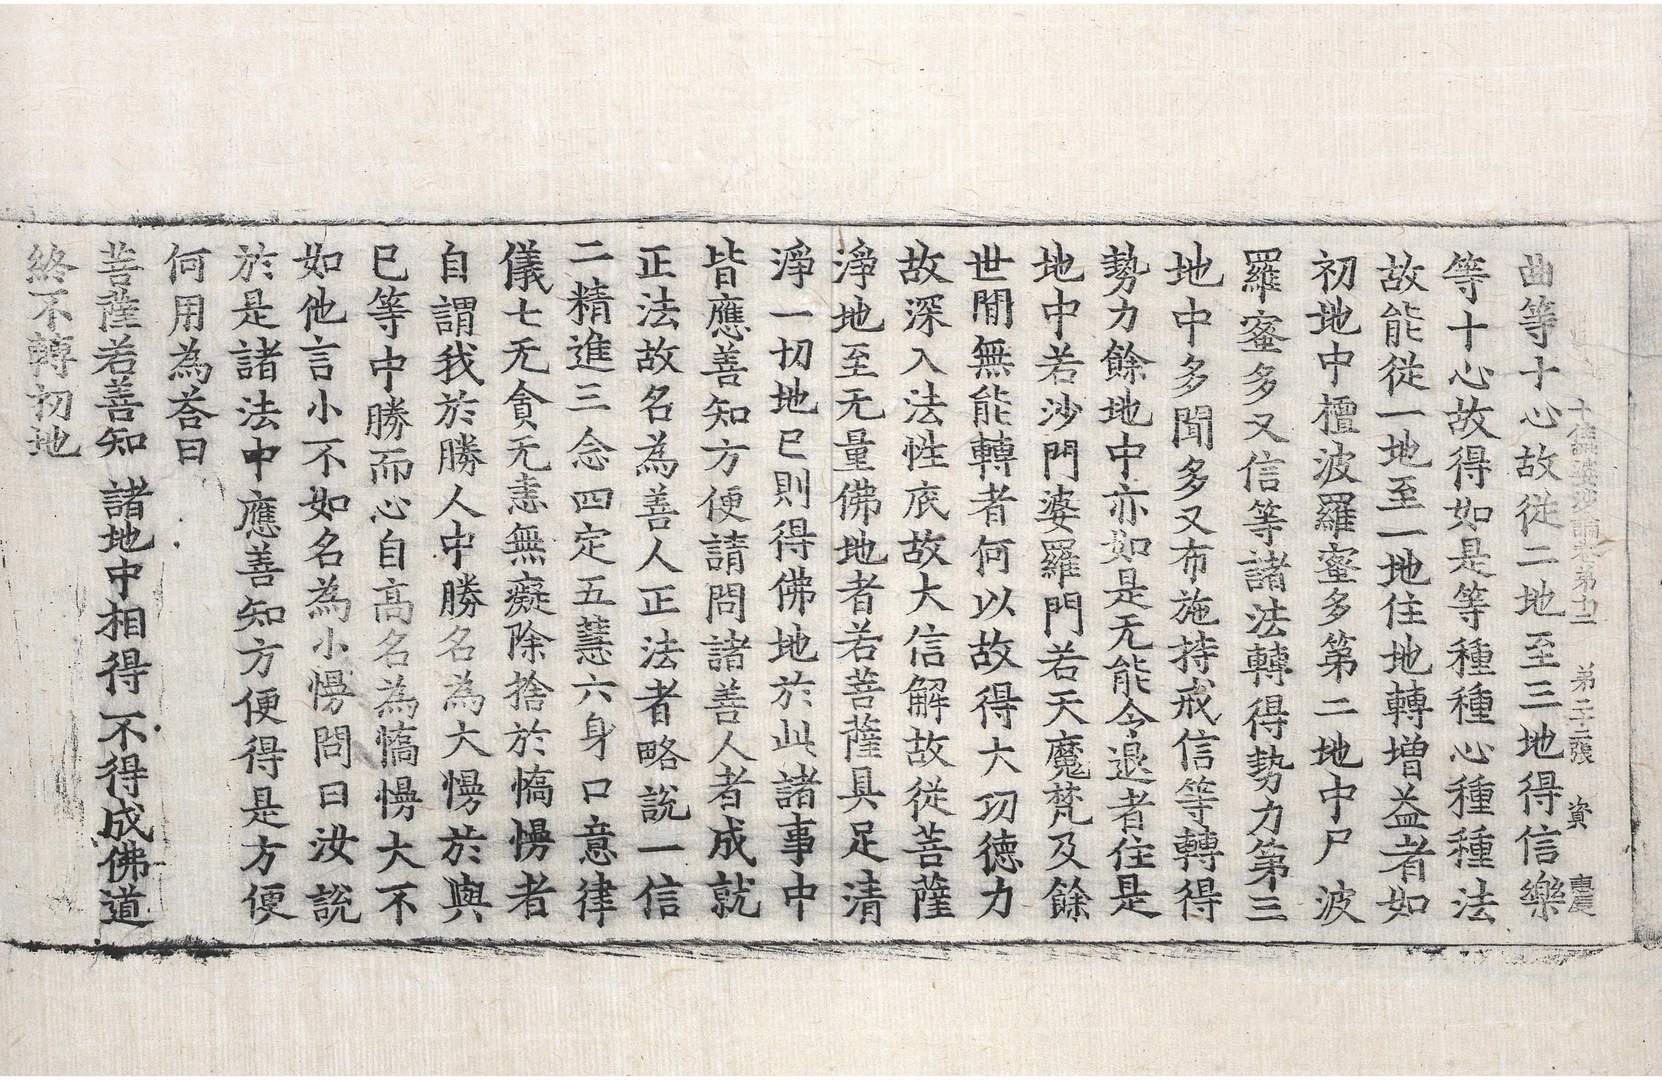 十住婆沙論卷第十二 第二十二張 資 慶
曲等十心故從二地至三地得信樂
等十心故得如是等種種心種種法
故能從一地至一地住地轉增益者如
初地中檀波羅蜜多第二地中尸波
羅蜜多又信等諸法轉得勢力第三
地中多聞多又布施持戒信等轉得
勢力餘地中亦如是无能令退者住是
地中若沙門婆羅門若天魔梵及餘
世間無能轉者何以故得大功德力
故深入法性底故大信解故從菩薩
淨地至无量佛地者若菩薩具足清
淨一切地已則得佛地於此諸事中
皆應善知方便請問諸善人者成就
正法故名為善人正法者略說一信
二精進三念四定五慧六身口意律
儀七无貪无恚無癡除捨於憍慢者
自謂我於勝人中勝名為大慢於與
已等中勝而心自高名為憍慢大不
如他言小不如名為小慢問曰汝說
於是諸法中應善知方便得是方便
何用為荅曰
菩薩若善知 諸地中相得 不得成佛道
終不轉初地